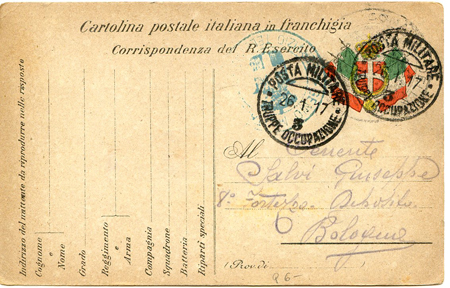 Cartolina postale italiana in franchigia
Corrispondenza del R. Esercito
POSTA MILITARE
26.1.17
3
TRUPPE OCCUPAZIONE
POSTA MILITARE
17
3
TRUPPE OCCUPAZIONE
Indirizzo del mittente da riprodurre nelle risposte
Cognome
e
Nome
Grado
Reggimento
e
Arma
Compagnia
Squadrone
Batteria
Riparti speciali
Al Tenente
Salvi Giuseppe
8° Fortezza
Bologna
(Prov. di